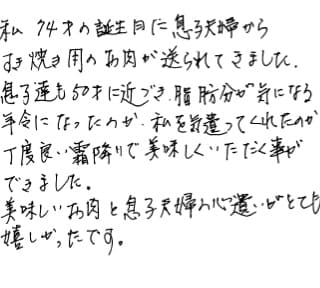 私 74才の誕生日に息子夫婦から
すき焼き用のお肉が送られてきました。
息子達も50才に近づき、脂肪分が気になる
年令になったのか、私を気遣ってくれたのか
丁度良い霜降りで美味しくいただく事が
できました。
美味しいお肉と息子夫婦の心遣いがとても
嬉しかったです。